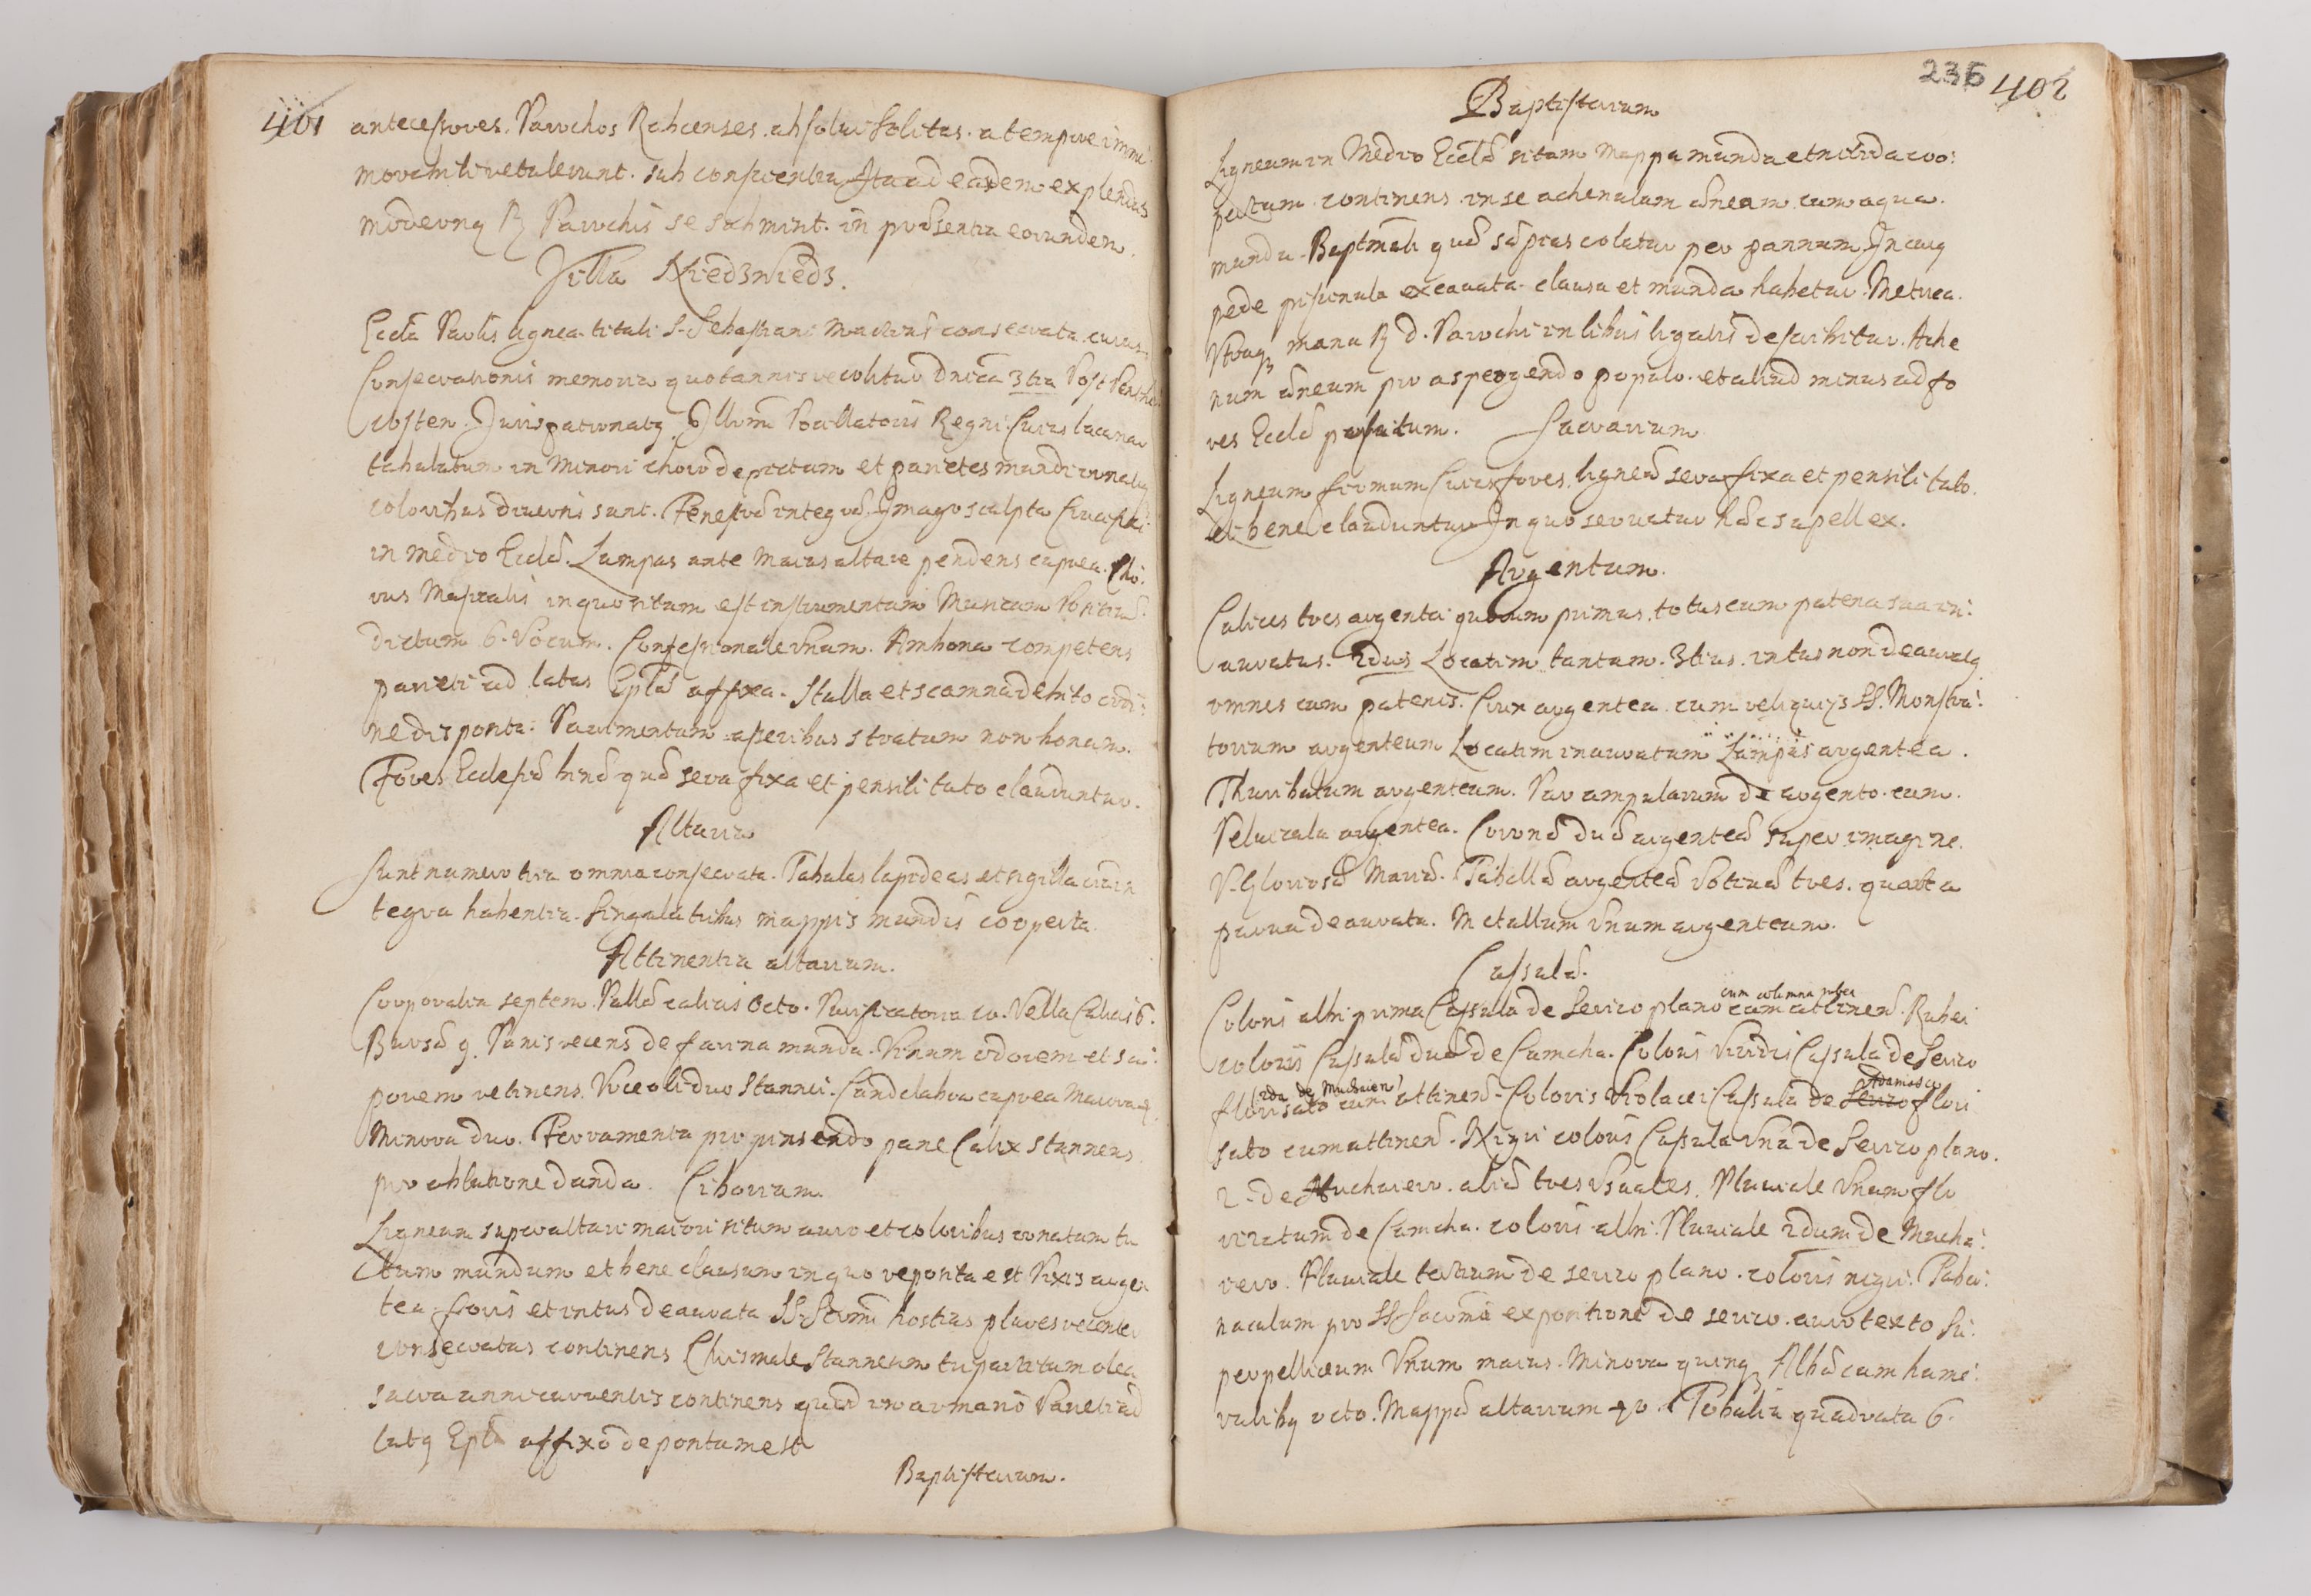 401
antecessores. Parochos Rahcenses. absolui solitas. a tempore imme
morabili retulerunt. sub conscientia Ita ad easdem explendas
modernq R Parochis se submint. in præsentia eorunden.
Villa Niedzwiedz.
Eccla Parlis lignea tituli S. Sebastiani Martiris consecrata cuius
Consecrationis memoria quotannis recolitur Dnica 3tia Post Pente
costen. Jurispatronatq Illrmi Pocillatoris Regni. Cuius lacunar
tabulatum in Minori choro depictum et parietes mundi ornatq
coloribus diuersi sunt. Fenestræ integræ. Imago sculpta Crucifixi
in medio Ecclæ. Lampas ante maius altare pendens cuprea. Cho:
rus Musicalis in quo situm est instrumentum Musicum Positiuũ
dictum 6. Vocum. Confessionale Vnum. Ambona competens
parieti ad latus Eplæ affixa. Stalla et scamna debito ordi:
ne disposita. Pauimentum asseribus stratum non bonum.
Fores Ecclesiæ binæ quæ sera fixa et pensili tuto clauduntur.
Altaria
Sunt numero tria omnia consecrata. Tabulas lapideas et sigilla in
tegra habentia. Singula tribus mappis mundis cooperta.
Attinentia altarium.
Corporalia septem. Pallæ calicis Octo. Purificatoria 20. Vella Calicis 6.
Bursæ 9. Panis recens de farina munda. Vinum odorem et sa:
porem retinens. Vrceoli duo stannei. Candelabra cuprea Maiora 4
Minora duo. Ferramenta pro pinsendo pane Calix stanneus
pro ablutione danda. Ciborium
Ligneum supra altari maiori situm auro et coloribus ornatum tu
tum mundum et bene clausum in quo reposita est Pixis argen
tea foris et intus deaurata SS. Scrmi hostias plures recenter
consecratas continens Chrismale Stanneum tripartitum olea
sacra anni currentis continens quod in armario Parieti ad
latq Eplæ affixo depositum est
Baptisterium.
236 402
Baptisterium
Ligneum in Medio Ecclæ situm Mappa munda et nitida coo:
pertum continens in se achenulam æneam cum aqua.
munda. Baptmali quæ sæpius colatur per pannum In cuiq
pede piscinula excauata clausa et munda habetur. Metrica.
Vtraqz manu R d. Parochi in libris ligatis describitur. Ahe
num æneum pro aspergendo populo. et aliud minus ad fo
res Ecclæ positum. Sacrarium
Ligneum firmum Cuius fores. ligneæ sera fixa et pensili tuto.
et bene clauduntur In quo seruatur hæc supellex.
Argentum.
Calices tres argentei quorum primus. totus cum patena sua in:
auratus. 2dus Locatim tantum. 3tius. intus non deauratq
omnes cum patenis. Crux argentea cum reliquijs SS. Monstra:
torium argenteum Locatim inauratum Lampas argentea.
Thuribulum argenteum. Par ampularum de argento. cum.
Peluicula argentea. Coronæ duæ argenteæ super imagine.
V. Gloriosæ Mariæ. Tabellæ argenteæ Votiuæ tres. quarta
parua deaurata. Metallum Vnum argenteum.
Casulæ.
cum columna rubea
Coloris albi prima Casula de Serico plano cum attinen. Rubei
coloris Casulæ duæ de Camcha. Coloris Viridis Casula de Serico
2da de Muchaier Adamasco
florisato cum attinen. Coloris Violacei Casula de Serico flori
sato cum attinen. Nigri coloris Casula Vna de Serico plano.
2. de Muchaiero. aliæ tres Vsuales. Pluuiale Vnum flo
rizatum de Camcha. coloris albi Pluuiale 2dum de Mucha:
iero. Pluuiale tertium de serico plano. coloris nigri. Taber:
naculum pro SS Sacrmi expositione de serico. auro texto Su:
perpellicium Vnum maius. Minora quinqz Albæ cum hume:
ralibq octo. Mappæ altarium 40. Tobalia quadrata 6.